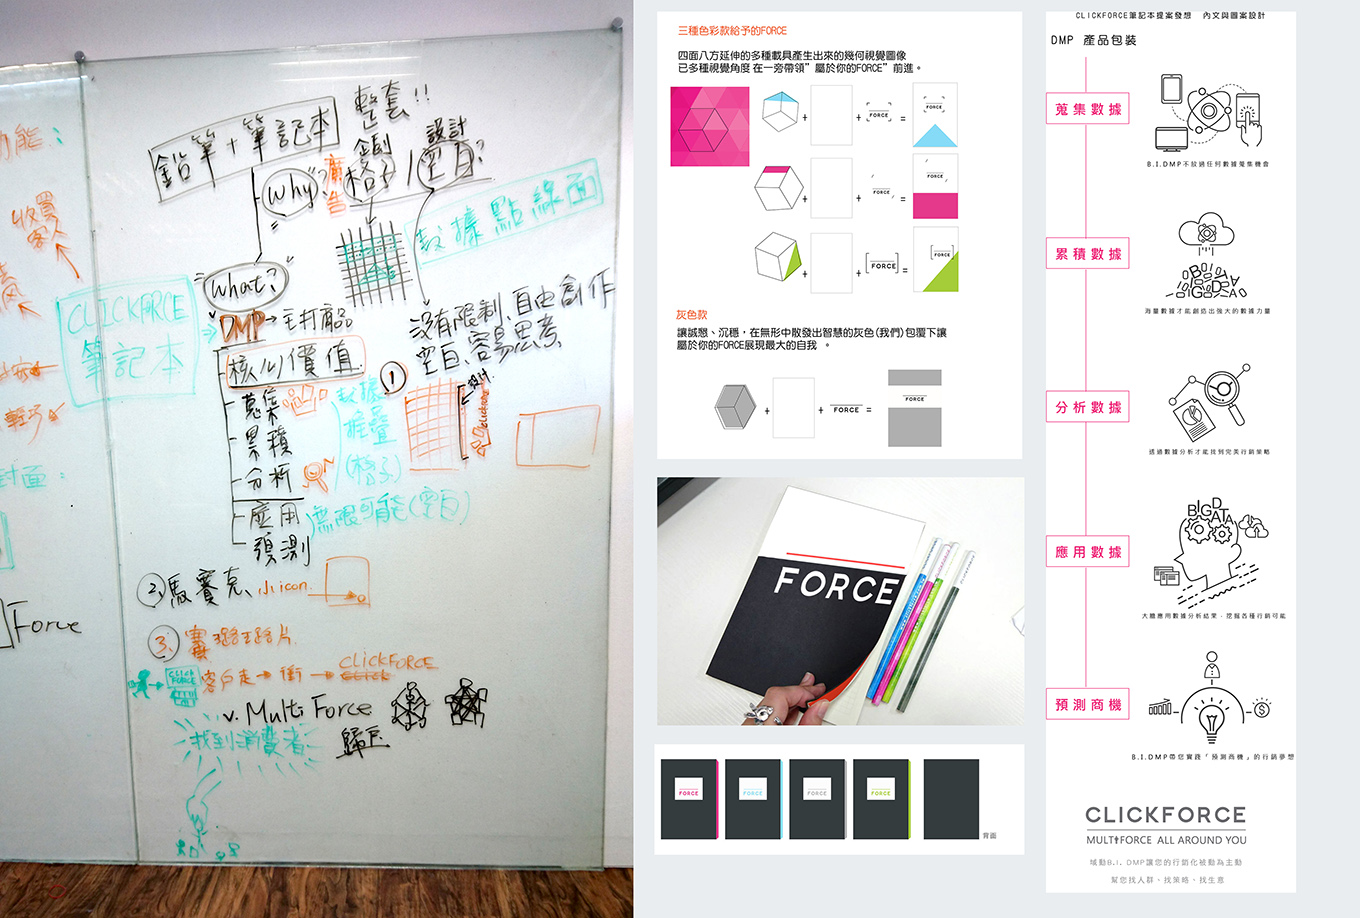 功能:
收買
客人
輕巧
封面:
Force
整套!!
鉛筆+筆記本
企劃 設計
Why? 廣告 格子/空白?
數據點線面
What?
CLICKFORCE
筆記本
DMP→主打商品
核心價值
蒐集
累積
分析
應用
預測
數據
堆疊
(格子)
無限可能(空白)
沒有限制、自由創作
空白、容易思考
①
設計
clickforce
2. 馬賽克、小icon
3.
客戶走→衝→CLICKFORCE
CLICK
FORCE
v. Multi Force
找到消費者
歸屬
三種色彩款給予的FORCE
四面八方延伸的多種載具產生出來的幾何視覺圖像
已多種視覺角度在一旁帶領”屬於你的FORCE”前進。
+ + FORCE = FORCE
+ + FORCE = FORCE
+ + FORCE = FORCE
灰色款
讓誠懇、沉穩,在無形中散發出智慧的灰色(我們)包覆下讓
屬於你的FORCE展現最大的自我 。
+ + FORCE = FORCE
FORCE
FORCE
FORCE
FORCE
FORCE
背面
CLICKFORCE筆記本提案發想 內文與圖案設計
DMP 產品包裝
蒐集數據
B.I.DMP不放過任何數據蒐集機會
累積數據
BIG DATA
海量數據才能創造出強大的數據力量
分析數據
透過數據分析才能找到完美行銷策略
應用數據
BIG DATA
大膽應用數據分析結果,挖掘各種行銷可能
預測商機
B.I.DMP帶您實踐「預測商機」的行銷夢想
CLICKFORCE
MULTIFORCE ALL AROUND YOU
域動B.I. DMP讓您的行銷化被動為主動
幫您找人群、找策略、找生意